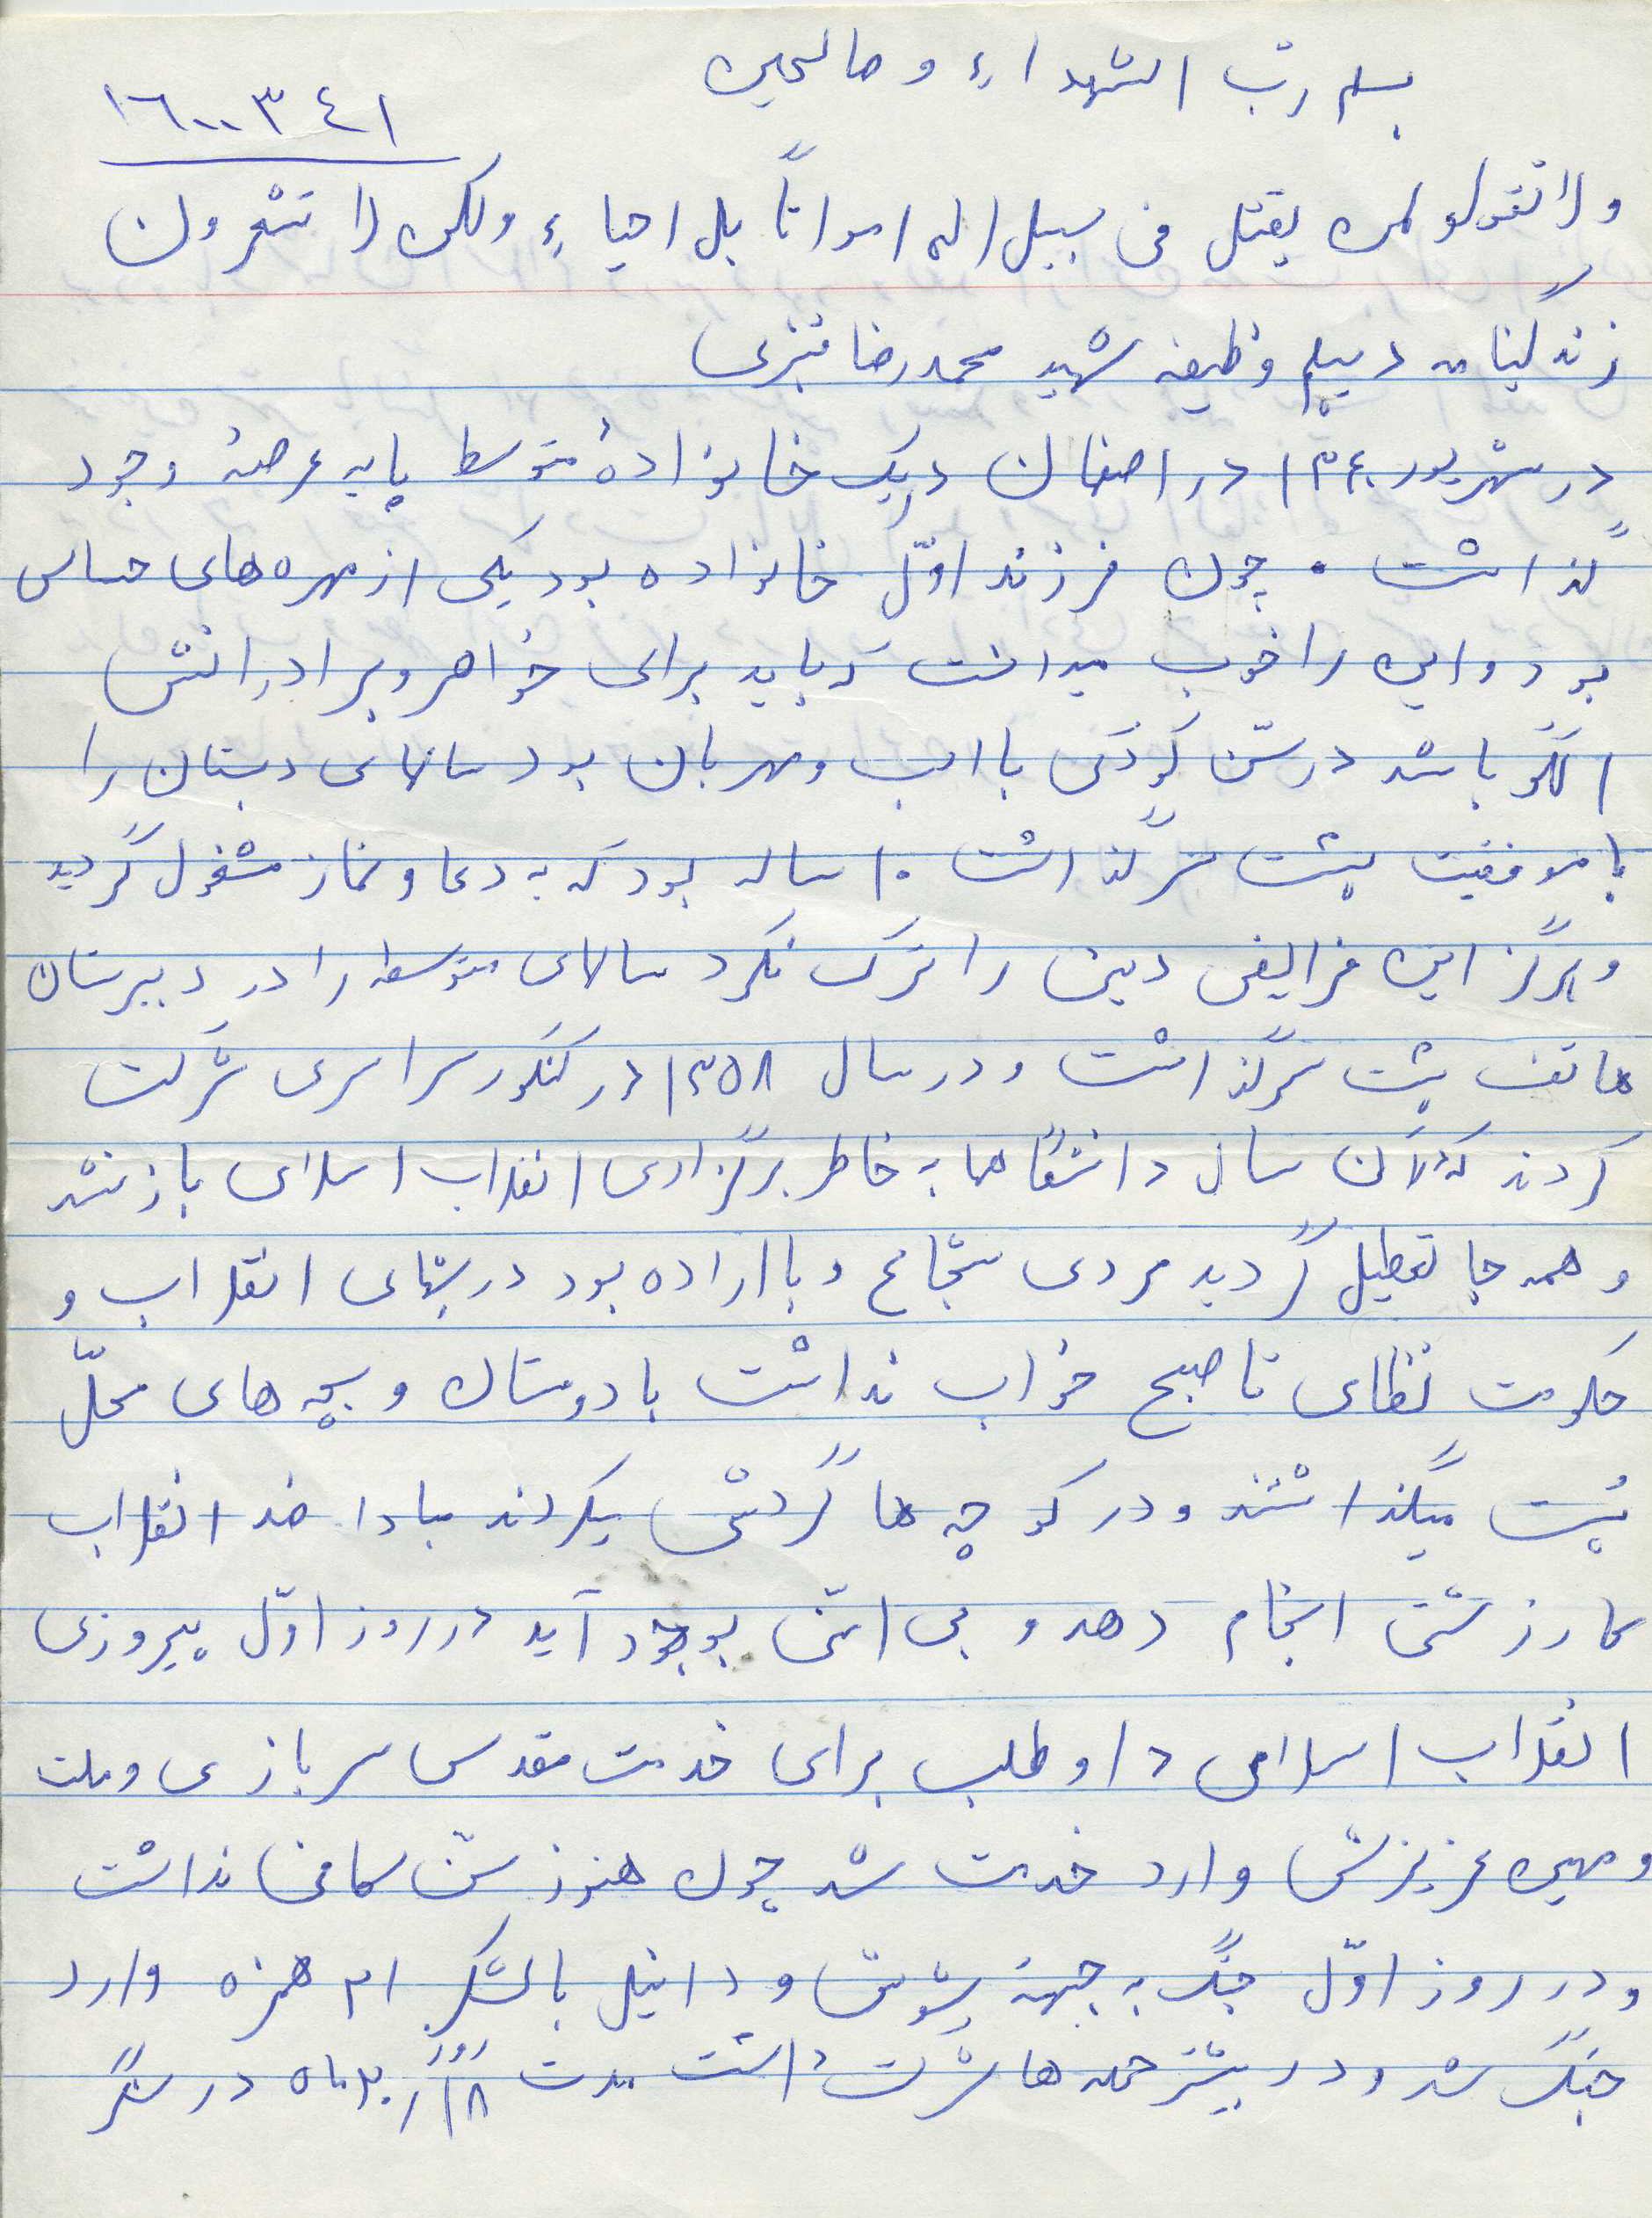 بسم رب الشهداء و صالحین
۱٦۰۰۳٤۱
ولا تقولو لمن یقتل فی سبیل اله امواتاً بل احیاء ولکن لا تشعرون
زندگینامه دیپلم وظیفه شهید محمدرضا
در شهریور ۱۳۴۰ در اصفهان در یک خانوادهٔ متوسط پا به عرصهٔ وجود
گذاشت . چون فرزند اوّل خانواده بود یکی از مهره های حساس
بود و این را خوب میدانست که باید برای خواهر و برادرانش
الگو باشد در سن کودکی با ادب و مهربان بود سالهای دبستان را
با موفقیت پشت سر گذاشت ۱۰ ساله بود که به دعا و نماز مشغول گردید
و هرگز این فرایض دینی را ترک نکرد سالهای متوسطه را در دبیرستان
هاتف پشت سر گذاشت و در سال ۱۳۵۸ در کنکور سراسری شرکت
کردند که آن سال دانشگاهها به خاطر برگزاری انقلاب اسلامی باز نشد
و همه جا تعطیل گردید مردی شجاع و با اراده بود در شبهای انقلاب و
حکومت نظامی تا صبح خواب نداشت با دوستان و بچه های محلّ
پست میگذاشتند و در کوچه ها گردش میکردند مبادا ضد انقلاب
کار زشتی انجام دهد و بی امنی بوجود آید در روز اوّل پیروزی
انقلاب اسلامی داوطلب برای خدمت مقدس سربازی و ملت
و میهن عزیزش وارد خدمت شد چون هنوز سنّ کافی نداشت
و در روز اوّل جنگ به جبههٔ شوش و دانیل با لشگر ۲۱ حمزه وارد
جنگ شد و در بیشتر حمله ها شرکت داشت مدت ۱۸ ماه در سنگر